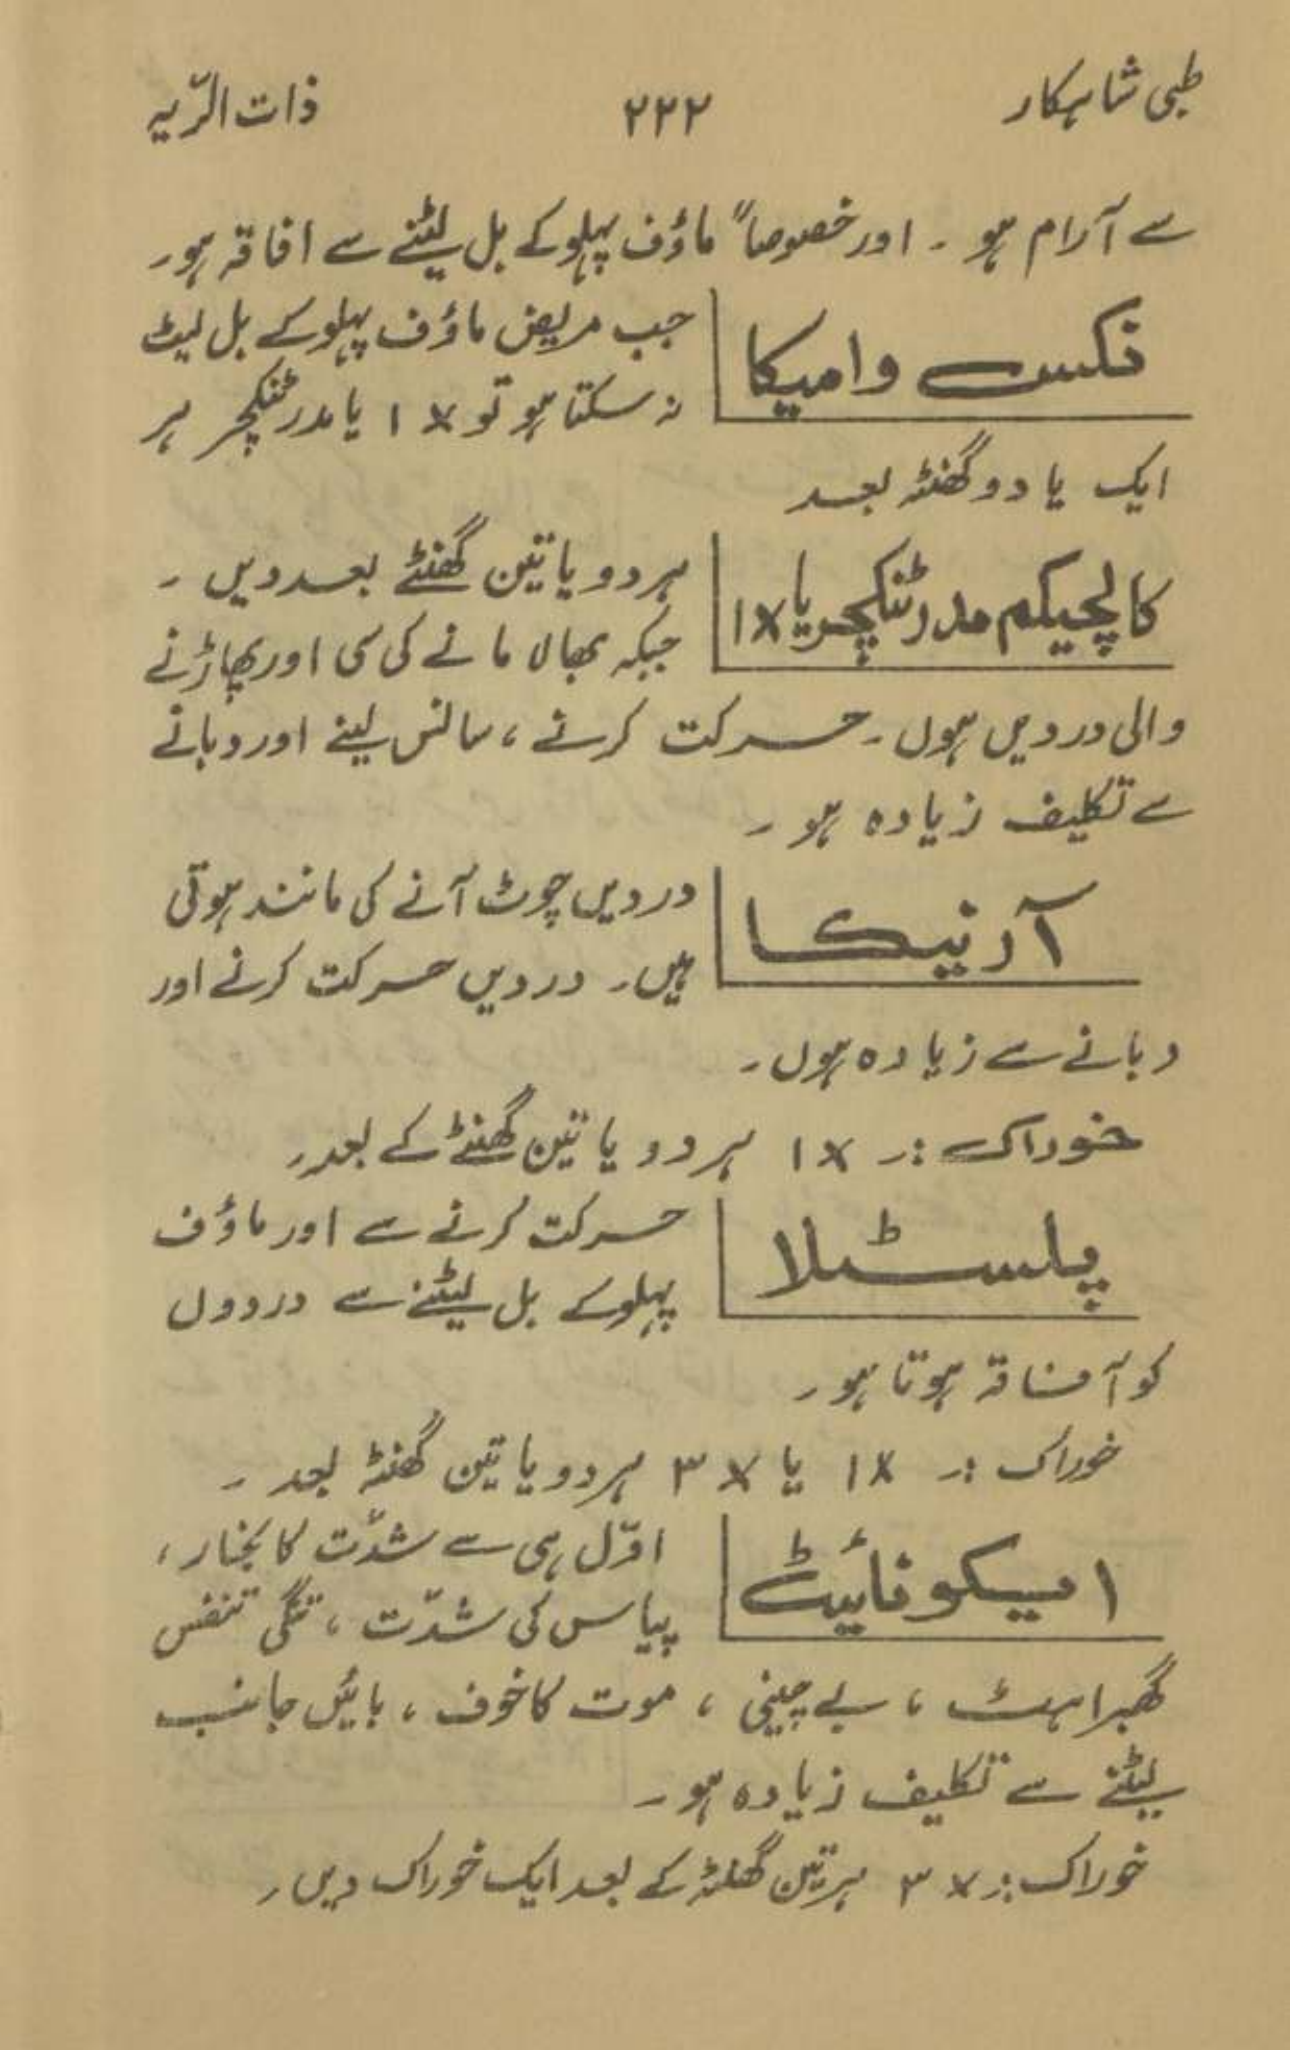 طبی شاہکار ۲۲۲ ذات الرّیہ
سے آرام ہو ۔ اور خصوصاً ماؤف پہلو کے بل لیٹنے سے افاقہ ہو۔
نکس وامیکا
جب مریض ماؤف پہلو کے بل لیٹ
نہ سکتا ہو تو 1X یا مدر ٹنکچر ہر
ایک یا دو گھنٹہ بعد
کالچیکم مدر ٹنکچر یا 1X
ہر دو یا تین گھنٹے بعد دیں ۔
جبکہ بھالا مانے کی سی اور پھاڑنے
والی دردیں ہوں ۔ حرکت کرنے ، سانس لینے اور دبانے
سے تکلیف زیادہ ہو ۔
آرنیکا
دردیں چوٹ آنے کی مانند ہوتی
ہیں۔ دردیں حرکت کرنے اور
دبانے سے زیادہ ہوں ۔
خوراک :۔ 1X ہر دو یا تین گھنٹے کے بعد۔
پلسٹلا
حرکت کرنے سے اور ماؤف
پہلو کے بل لیٹنے سے دردوں
کو آفاقہ ہوتا ہو ۔
خوراک :۔ 1X یا ۳X ہر دو یا تین گھنٹہ بعد ۔
ایکونائیٹ
اوّل ہی سے شدّت کا بخار ،
پیاس کی شدّت ، تنگی تنفس
گھبراہٹ ، بے چینی ، موت کا خوف ، بائیں جانب
لیٹنے سے تکلیف زیادہ ہو ۔
خوراک :۔ ۳X ہر تین گھنٹہ کے بعد ایک خوراک دیں ۔